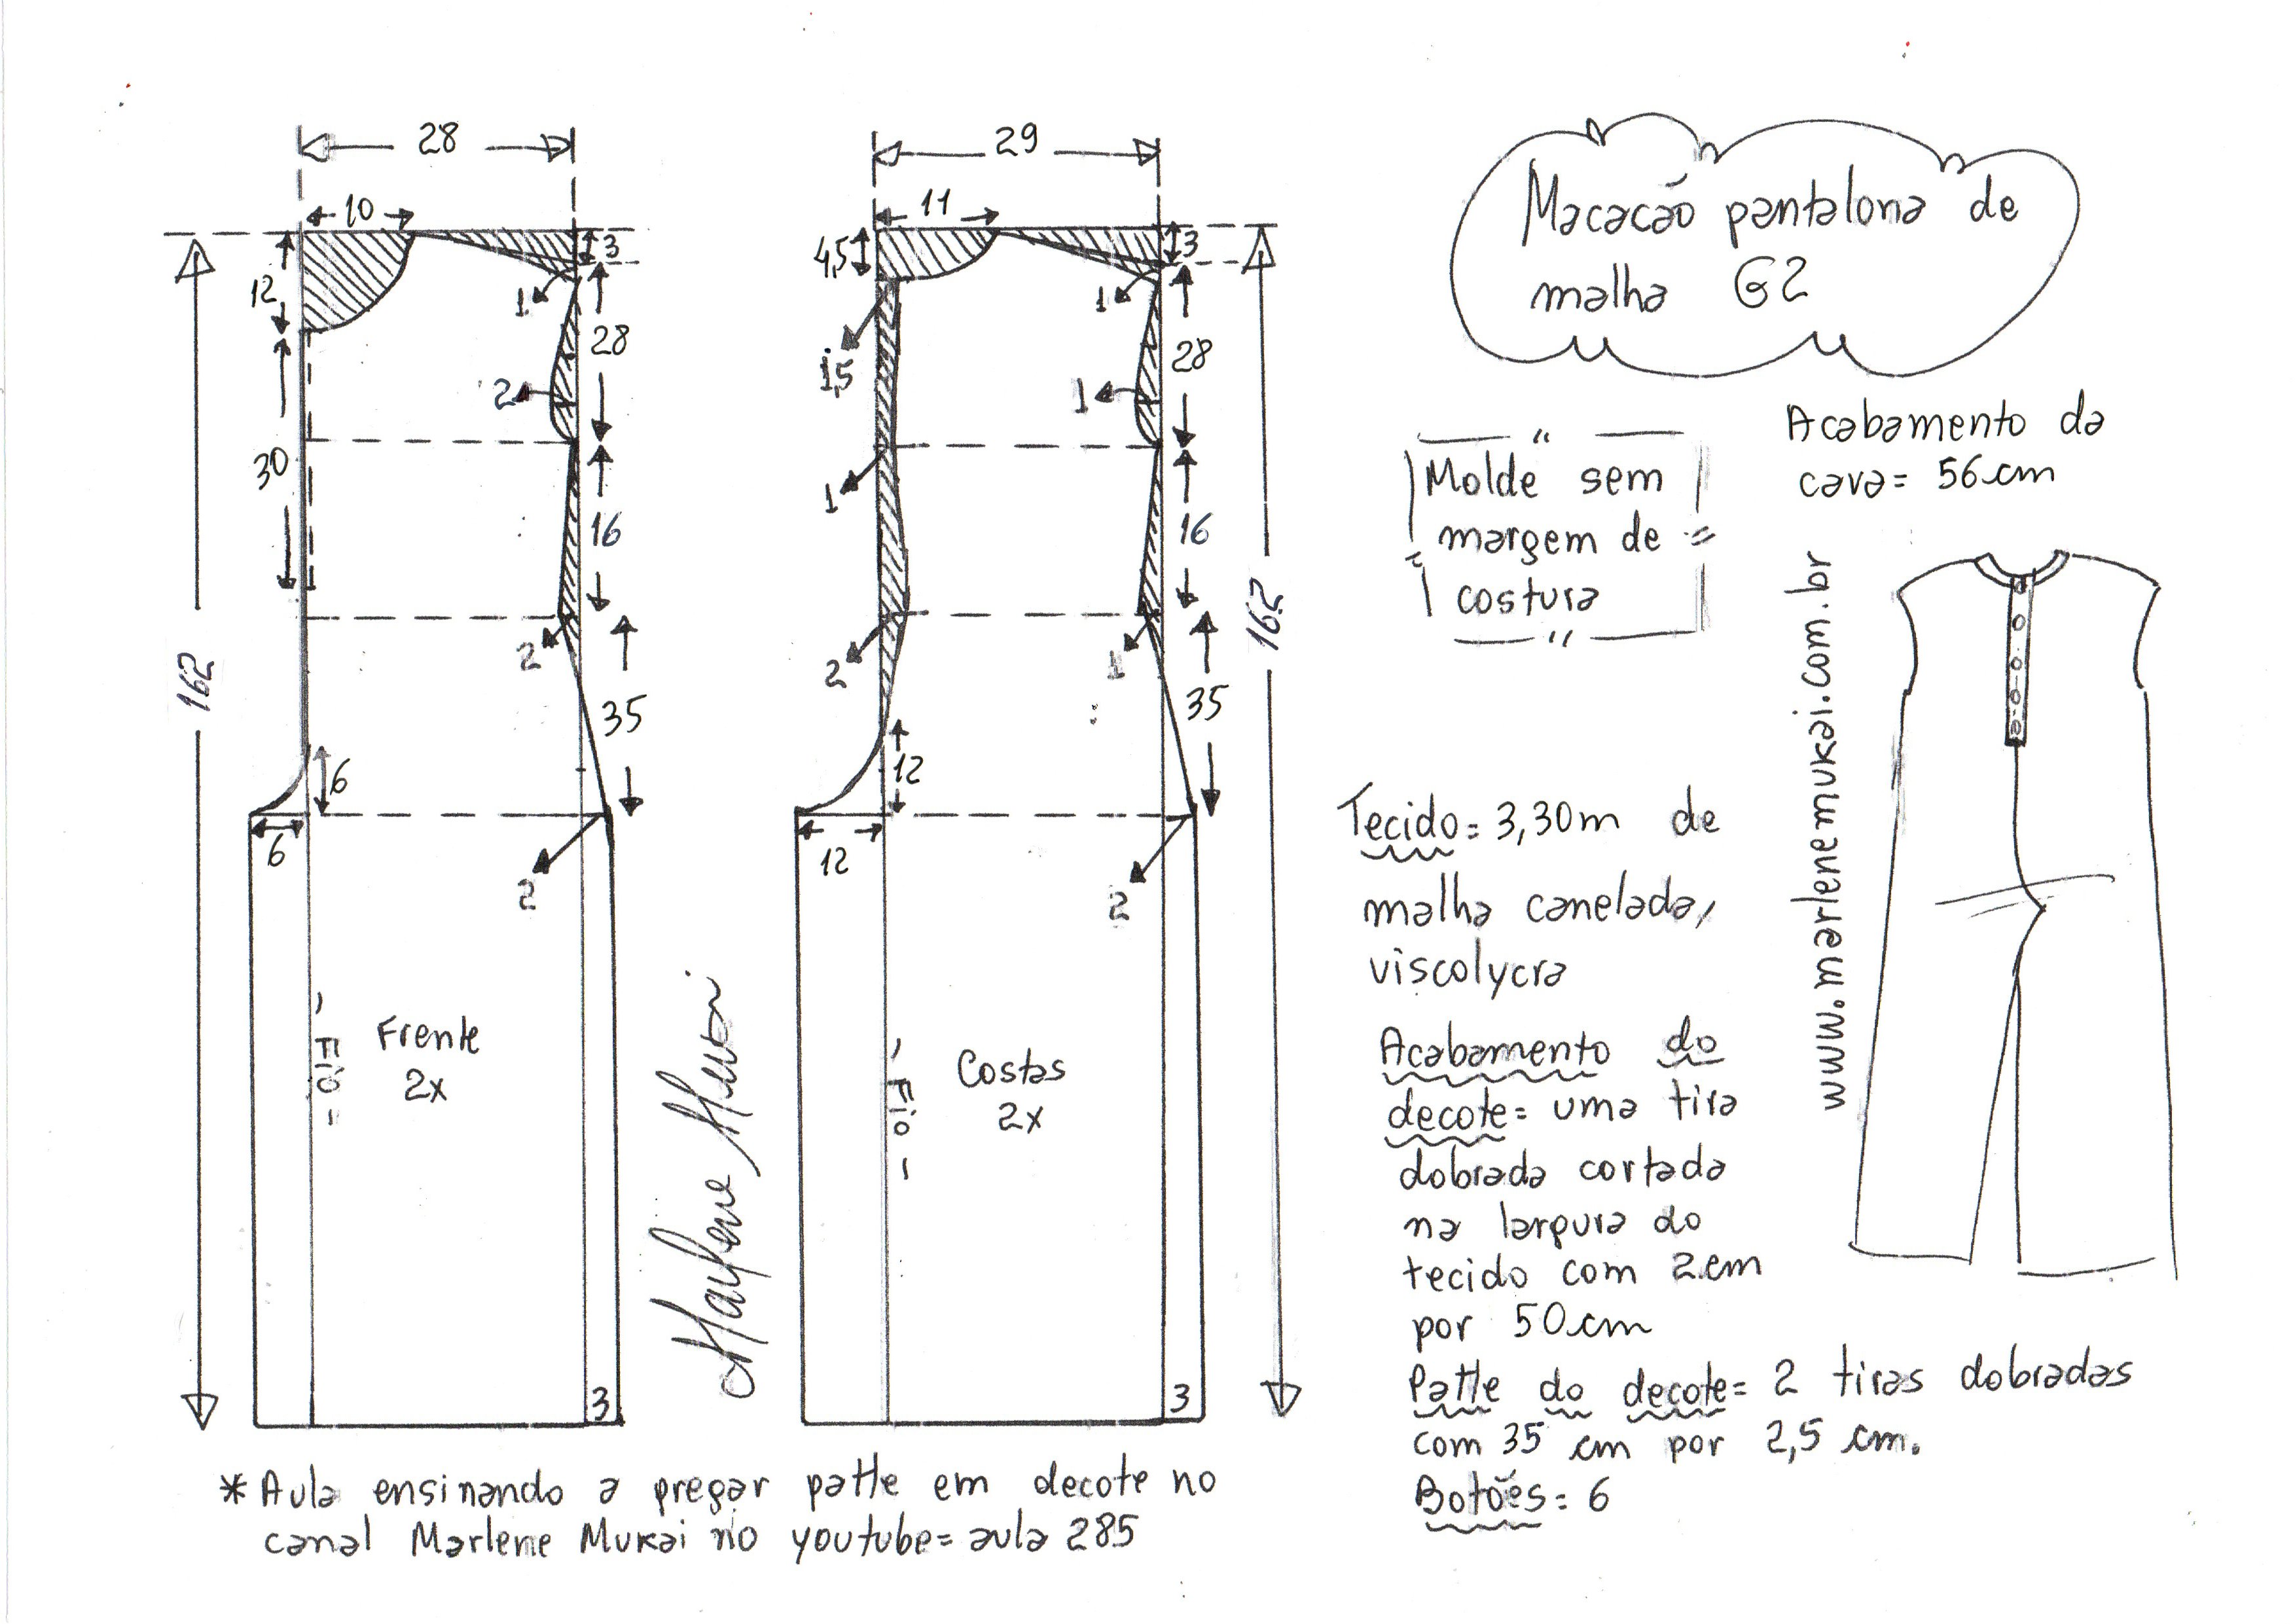 28
10
12
30
3
1
28
2
16
2
35
6
6
2
162
Frente
2x
- Fio -
3
29
11
4,5
1,5
1
2
12
12
3
1
28
1
16
1
35
2
162
Costas
2x
- Fio -
3
Marlene Mukai
Macacão pantalona de
malha G2
Molde sem
margem de
costura
Acabamento da
cava= 56cm
www.marlenemukai.com.br
Tecido= 3,30m de
malha canelada,
viscolycra
Acabamento do
decote= uma tira
dobrada cortada
na largura do
tecido com 2cm
por 50cm
Patte do decote= 2 tiras dobradas
com 35 cm por 2,5 cm.
Botões= 6
* Aula ensinando a pregar patte em decote no
canal Marlene Mukai no youtube= aula 285